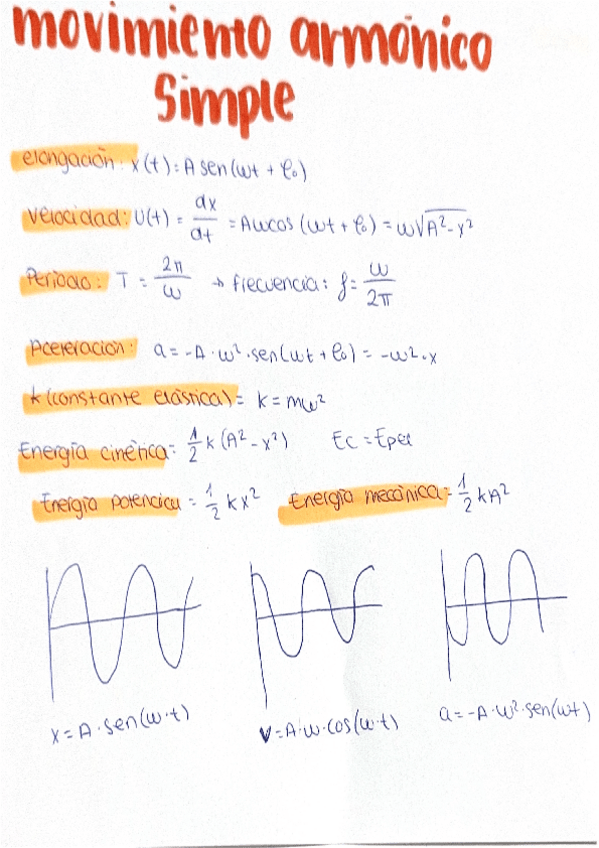 movimiento armónico
Simple
elongación: x(t) = A sen(ωt + φ₀)
Velocidad: v(t) = dx/dt = Aωcos (ωt + φ₀) = ω√(A² - x²)
Período: T = 2π/ω → frecuencia: f = ω/2π
Aceleración: a = -A · ω² · sen(ωt + φ₀) = -ω² · x
k (constante elástica) = k = mω²
Energía cinética = 1/2 k (A² - x²) Ec = Epel
Energía potencial = 1/2 kx² Energía mecánica = 1/2 kA²
x = A · sen(ω · t) v = A · ω · cos(ω · t) a = -A · ω² · sen(ωt)